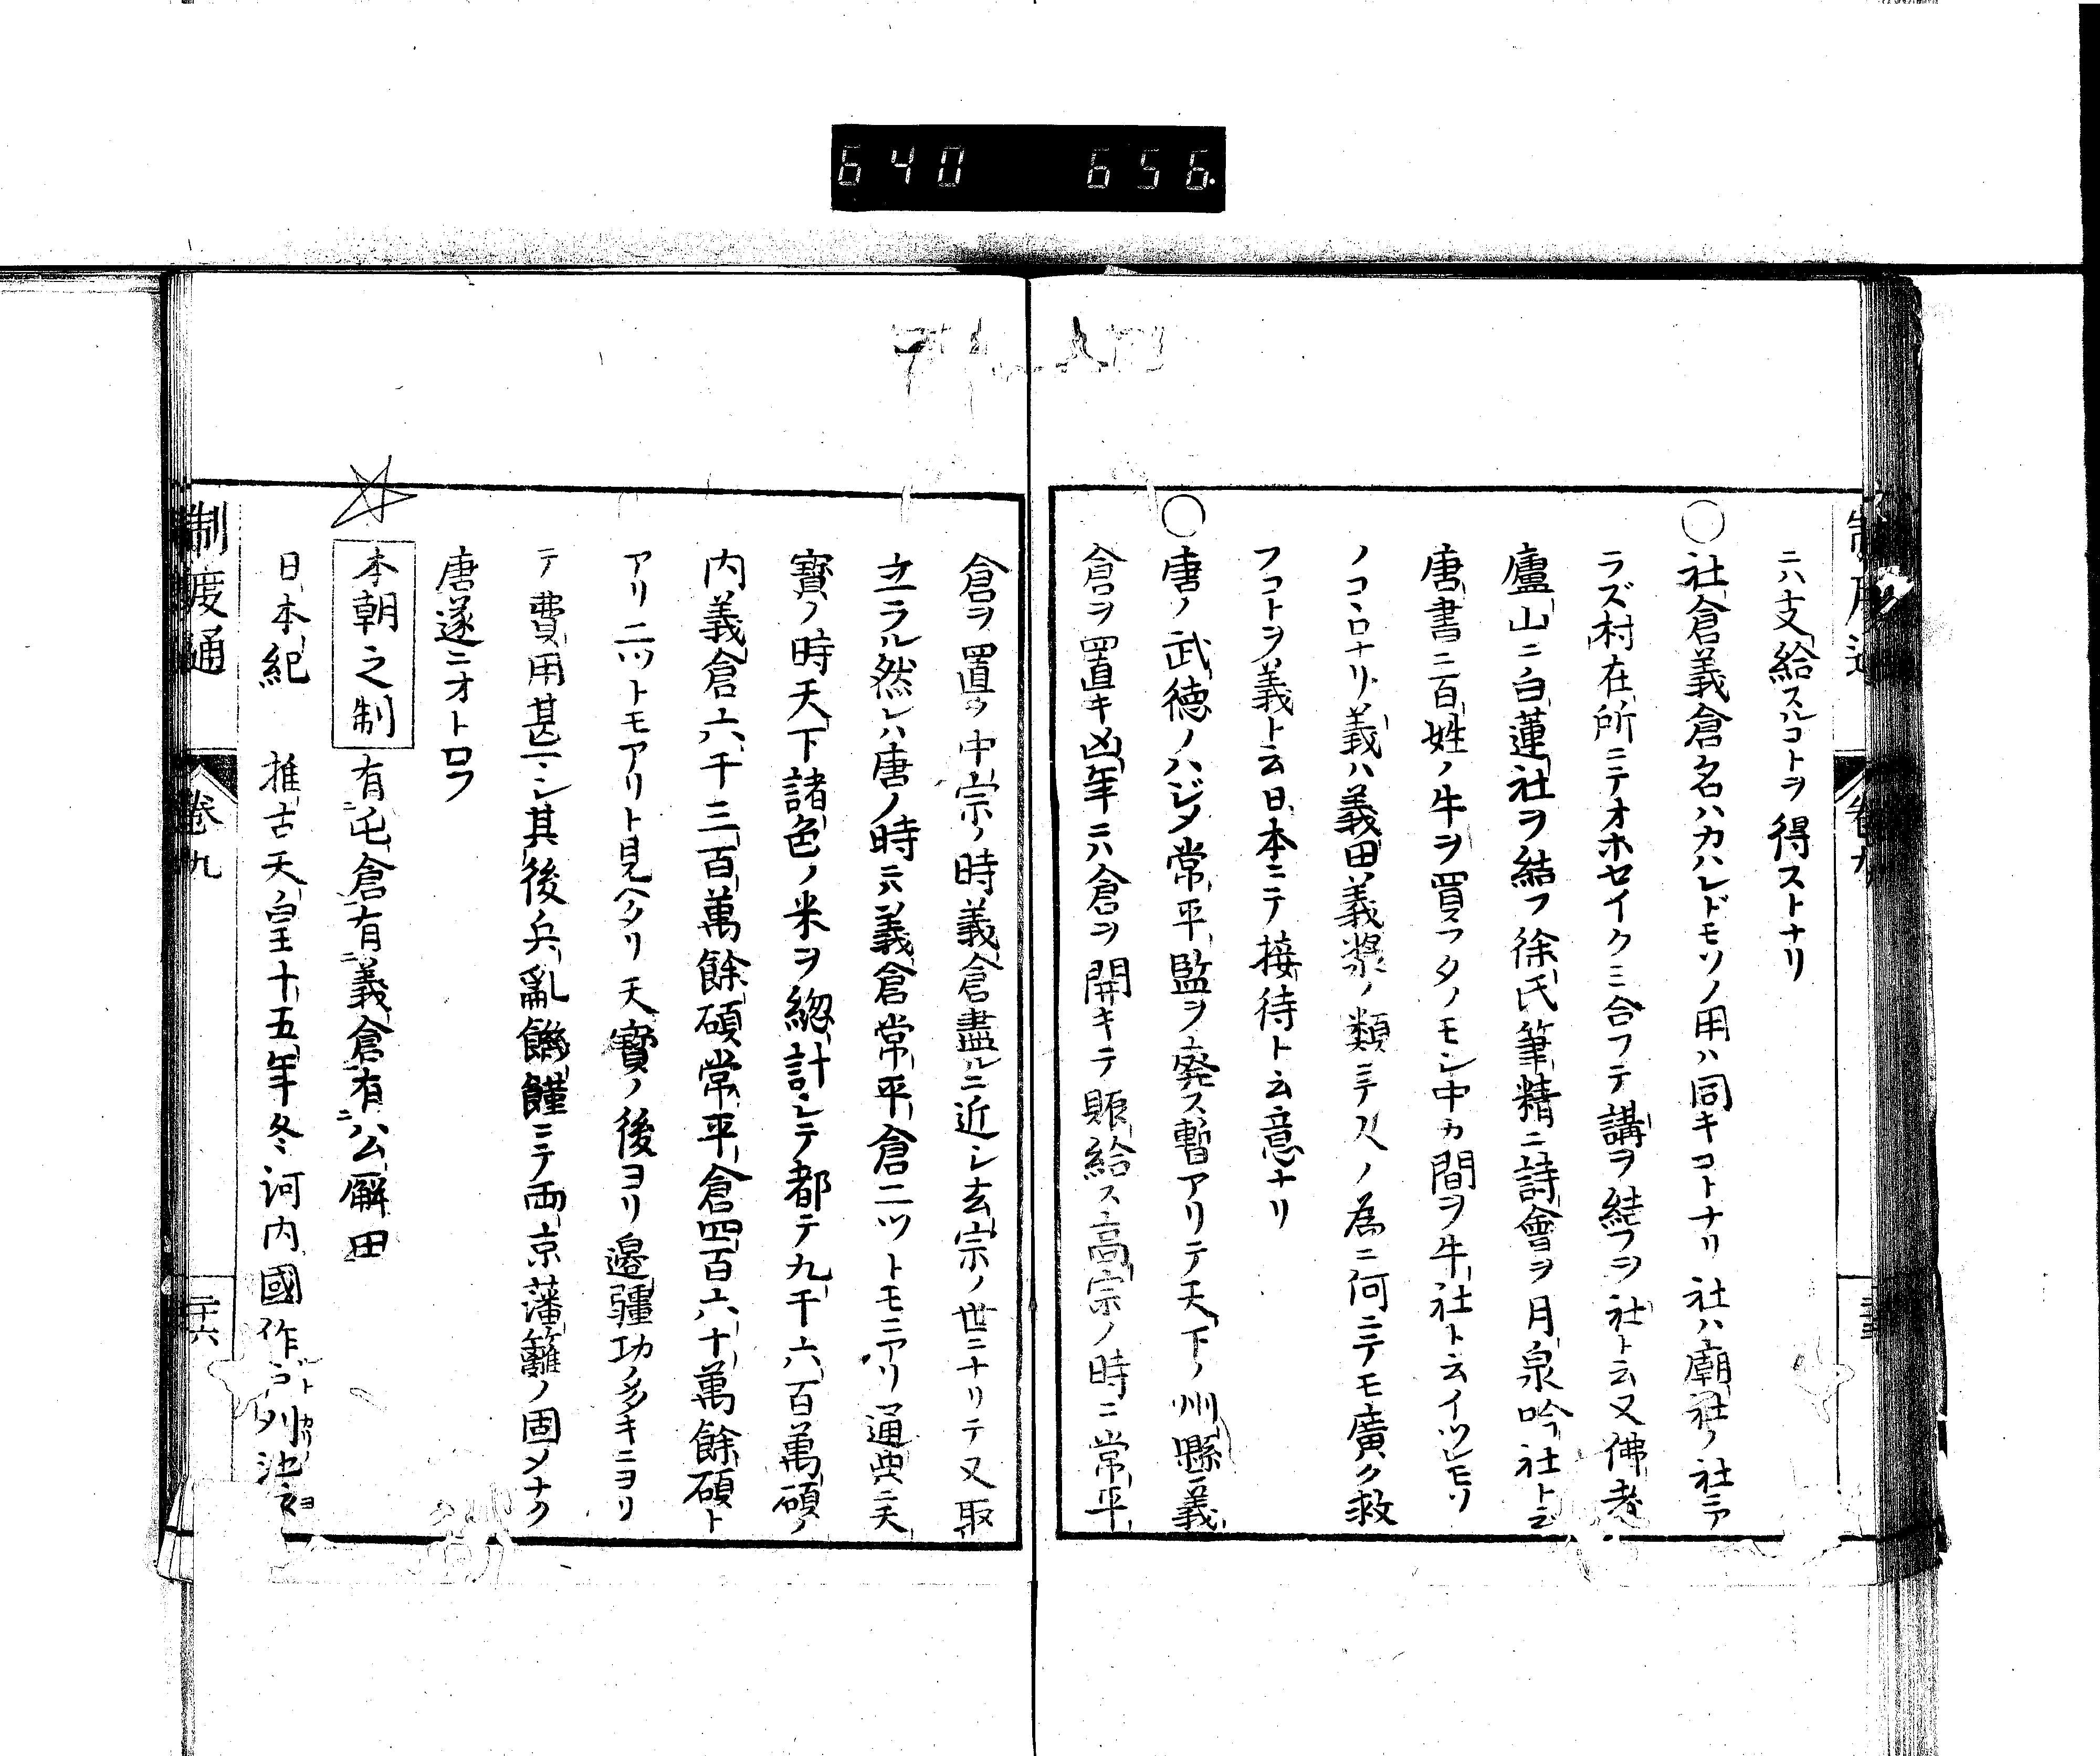 640 656.
ニハ支給スルコトヲ得ストナリ
〇社倉義倉名ハカハレドモソノ用ハ同キコトナリ社ハ廟社ノ社ニア
ラズ村在所ニテオホセイクミ合フテ講ヲ結フヲ社ト云又佛者
廬山ニ白蓮社ヲ結フ徐氏筆精ニ詩會ヲ月泉吟社ト云
唐書ニ百姓ノ牛ヲ買フタノモシ中カ間ヲ牛社ト云イツレモソ
ノコヽロナリ義ハ義田義漿ノ類ニテ人ノ為ニ何ニテモ廣ク救
フコトヲ義ト云日本ニテ接待ト云意ナリ
〇唐ノ武徳ノハジメ常平監ヲ廃ス暫アリテ天下ノ州縣義
倉ヲ置キ凶年ニハ倉ヲ開キテ賑給ス高宗ノ時ニ常平
倉ヲ置ク中宗ノ時義倉盡ルニ近シ玄宗ノ世ニナリテ又取
立ラル然レハ唐ノ時ニハ義倉常平倉二ツトモニアリ通典ニ天
寳ノ時天下諸色ノ米ヲ總計シテ都テ九千六百萬碩ノ
内義倉六千三百萬餘碩常平倉四百六十萬餘碩ト
アリ二ツトモアリト見ヘタリ天寳ノ後ヨリ邉疆功ノ多キニヨリ
テ費用甚シ其後兵亂饑饉ニテ両京藩籬ノ固メナク
唐遂ニオトロフ
本朝之制 有屯倉有義倉有公廨田
日本紀 推古天皇十五年冬河内國作戸刈池
制度通 卷九 二十六